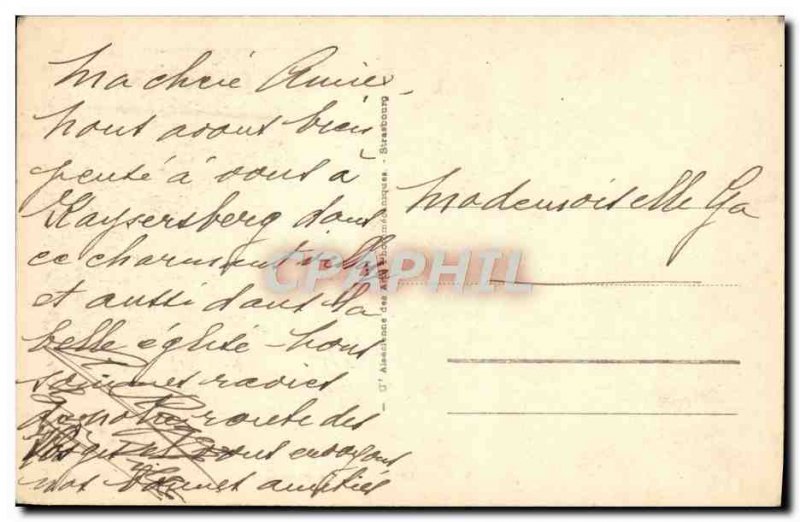 Ma chère Amie,
nous avons bien
pensé à vous à
Kaysersberg dans
ce charmant village
et aussi dans la
belle église - nous
sommes ravies
de notre route des
Vosges et vous envoyons
nos bonnes amitiés
Cie Alsacienne des Arts Photomécaniques. - Strasbourg
Mademoiselle Ga
CPAPHIL